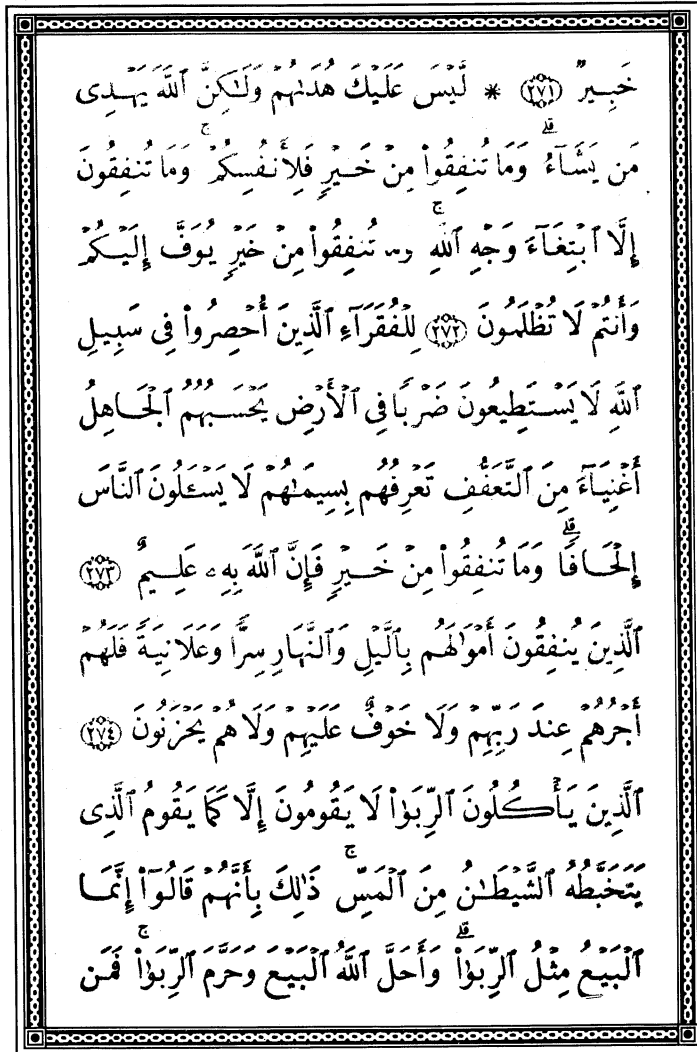 خَبِيرٌ ﴿٢٧١﴾ * لَّيْسَ عَلَيْكَ هُدَىٰهُمْ وَلَـٰكِنَّ ٱللَّهَ يَهْدِى
مَن يَشَآءُ ۗ وَمَا تُنفِقُوا۟ مِنْ خَيْرٍ فَلِأَنفُسِكُمْ ۚ وَمَا تُنفِقُونَ
إِلَّا ٱبْتِغَآءَ وَجْهِ ٱللَّهِ ۚ وَمَا تُنفِقُوا۟ مِنْ خَيْرٍ يُوَفَّ إِلَيْكُمْ
وَأَنتُمْ لَا تُظْلَمُونَ ﴿٢٧٢﴾ لِلْفُقَرَآءِ ٱلَّذِينَ أُحْصِرُوا۟ فِى سَبِيلِ
ٱللَّهِ لَا يَسْتَطِيعُونَ ضَرْبًا فِى ٱلْأَرْضِ يَحْسَبُهُمُ ٱلْجَاهِلُ
أَغْنِيَآءَ مِنَ ٱلتَّعَفُّفِ تَعْرِفُهُم بِسِيمَـٰهُمْ لَا يَسْـَٔلُونَ ٱلنَّاسَ
إِلْحَافًا ۗ وَمَا تُنفِقُوا۟ مِنْ خَيْرٍ فَإِنَّ ٱللَّهَ بِهِۦ عَلِيمٌ ﴿٢٧٣﴾
ٱلَّذِينَ يُنفِقُونَ أَمْوَٰلَهُم بِٱلَّيْلِ وَٱلنَّهَارِ سِرًّا وَعَلَانِيَةً فَلَهُمْ
أَجْرُهُمْ عِندَ رَبِّهِمْ وَلَا خَوْفٌ عَلَيْهِمْ وَلَا هُمْ يَحْزَنُونَ ﴿٢٧٤﴾
ٱلَّذِينَ يَأْكُلُونَ ٱلرِّبَوٰا۟ لَا يَقُومُونَ إِلَّا كَمَا يَقُومُ ٱلَّذِى
يَتَخَبَّطُهُ ٱلشَّيْطَـٰنُ مِنَ ٱلْمَسِّ ۚ ذَٰلِكَ بِأَنَّهُمْ قَالُوٓا۟ إِنَّمَا
ٱلْبَيْعُ مِثْلُ ٱلرِّبَوٰا۟ ۗ وَأَحَلَّ ٱللَّهُ ٱلْبَيْعَ وَحَرَّمَ ٱلرِّبَوٰا۟ ۚ فَمَن